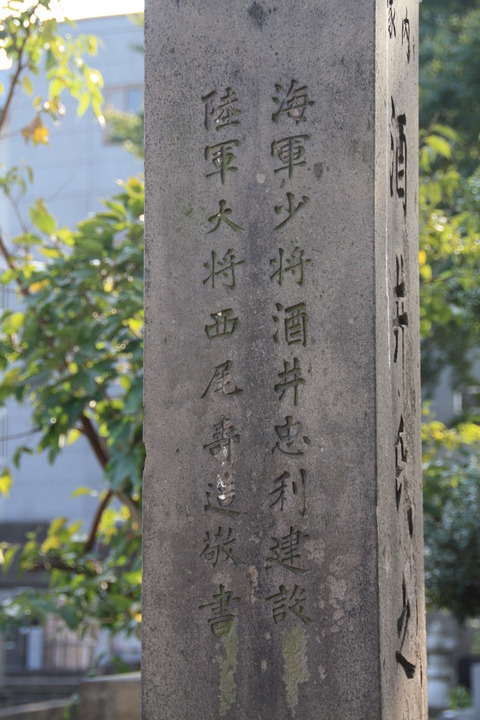 海軍少将酒井忠利建設
陸軍大将西尾壽造敬書
酒井